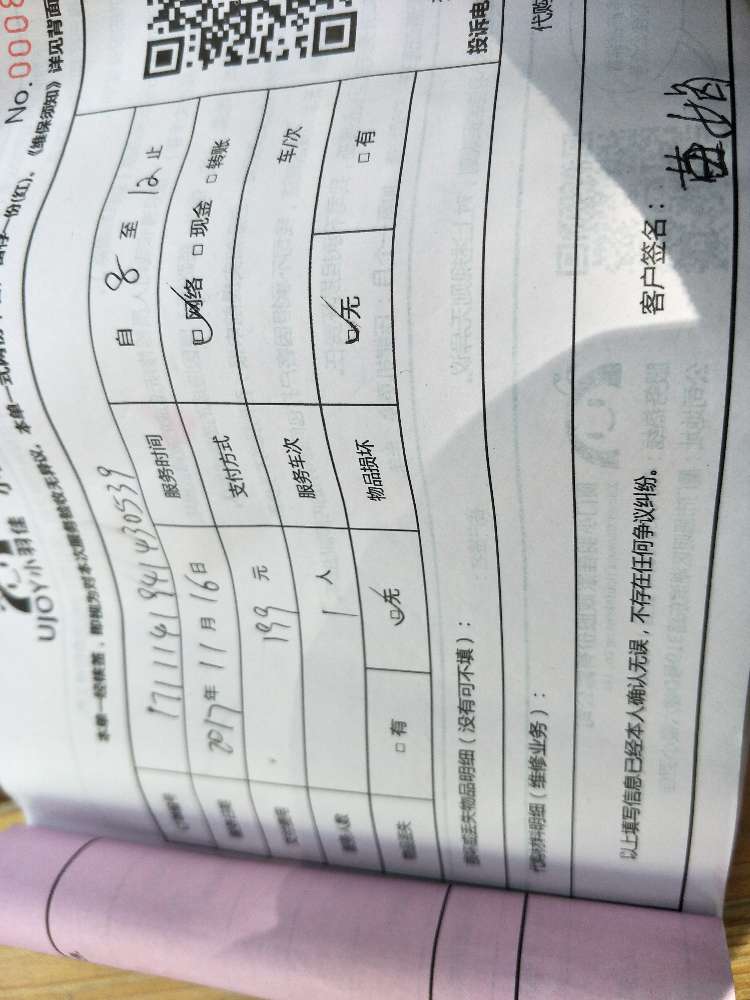 No.0008
本单一式两份 份(红)，《维保须知》详见背面
UJOY小羽佳
本单一经核签，即视为对本次服务验收无异议，
订单编号 1711141941430539
服务日期 2017年11月16日 服务时间 自 8 至 12 止
支付费用 199 元 支付方式 ☑网络 □现金 □转账
服务人数 1 人 服务车次 车/次
物品丢失 □有 ☑无 物品损坏 ☑无 □有
损坏或丢失物品明细（没有可不填）：
代购材料明细（维修业务）：
以上填写信息已经本人确认无误，不存在任何争议纠纷。
客户签名：
投诉电
代购